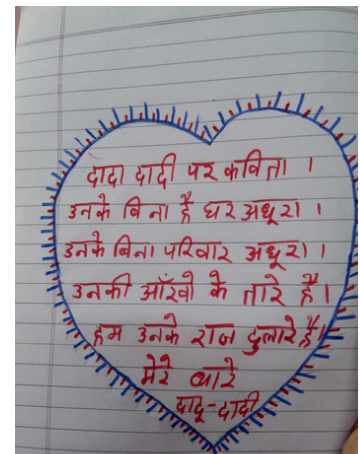 दादा दादी पर कविता ।
उनके बिना है घर अधूरा ।
उनके बिना परिवार अधूरा ।
उनकी आँखो के तारे है ।
हम उनके राज दुलारे है ।
मेरे प्यारे
दादू-दादी